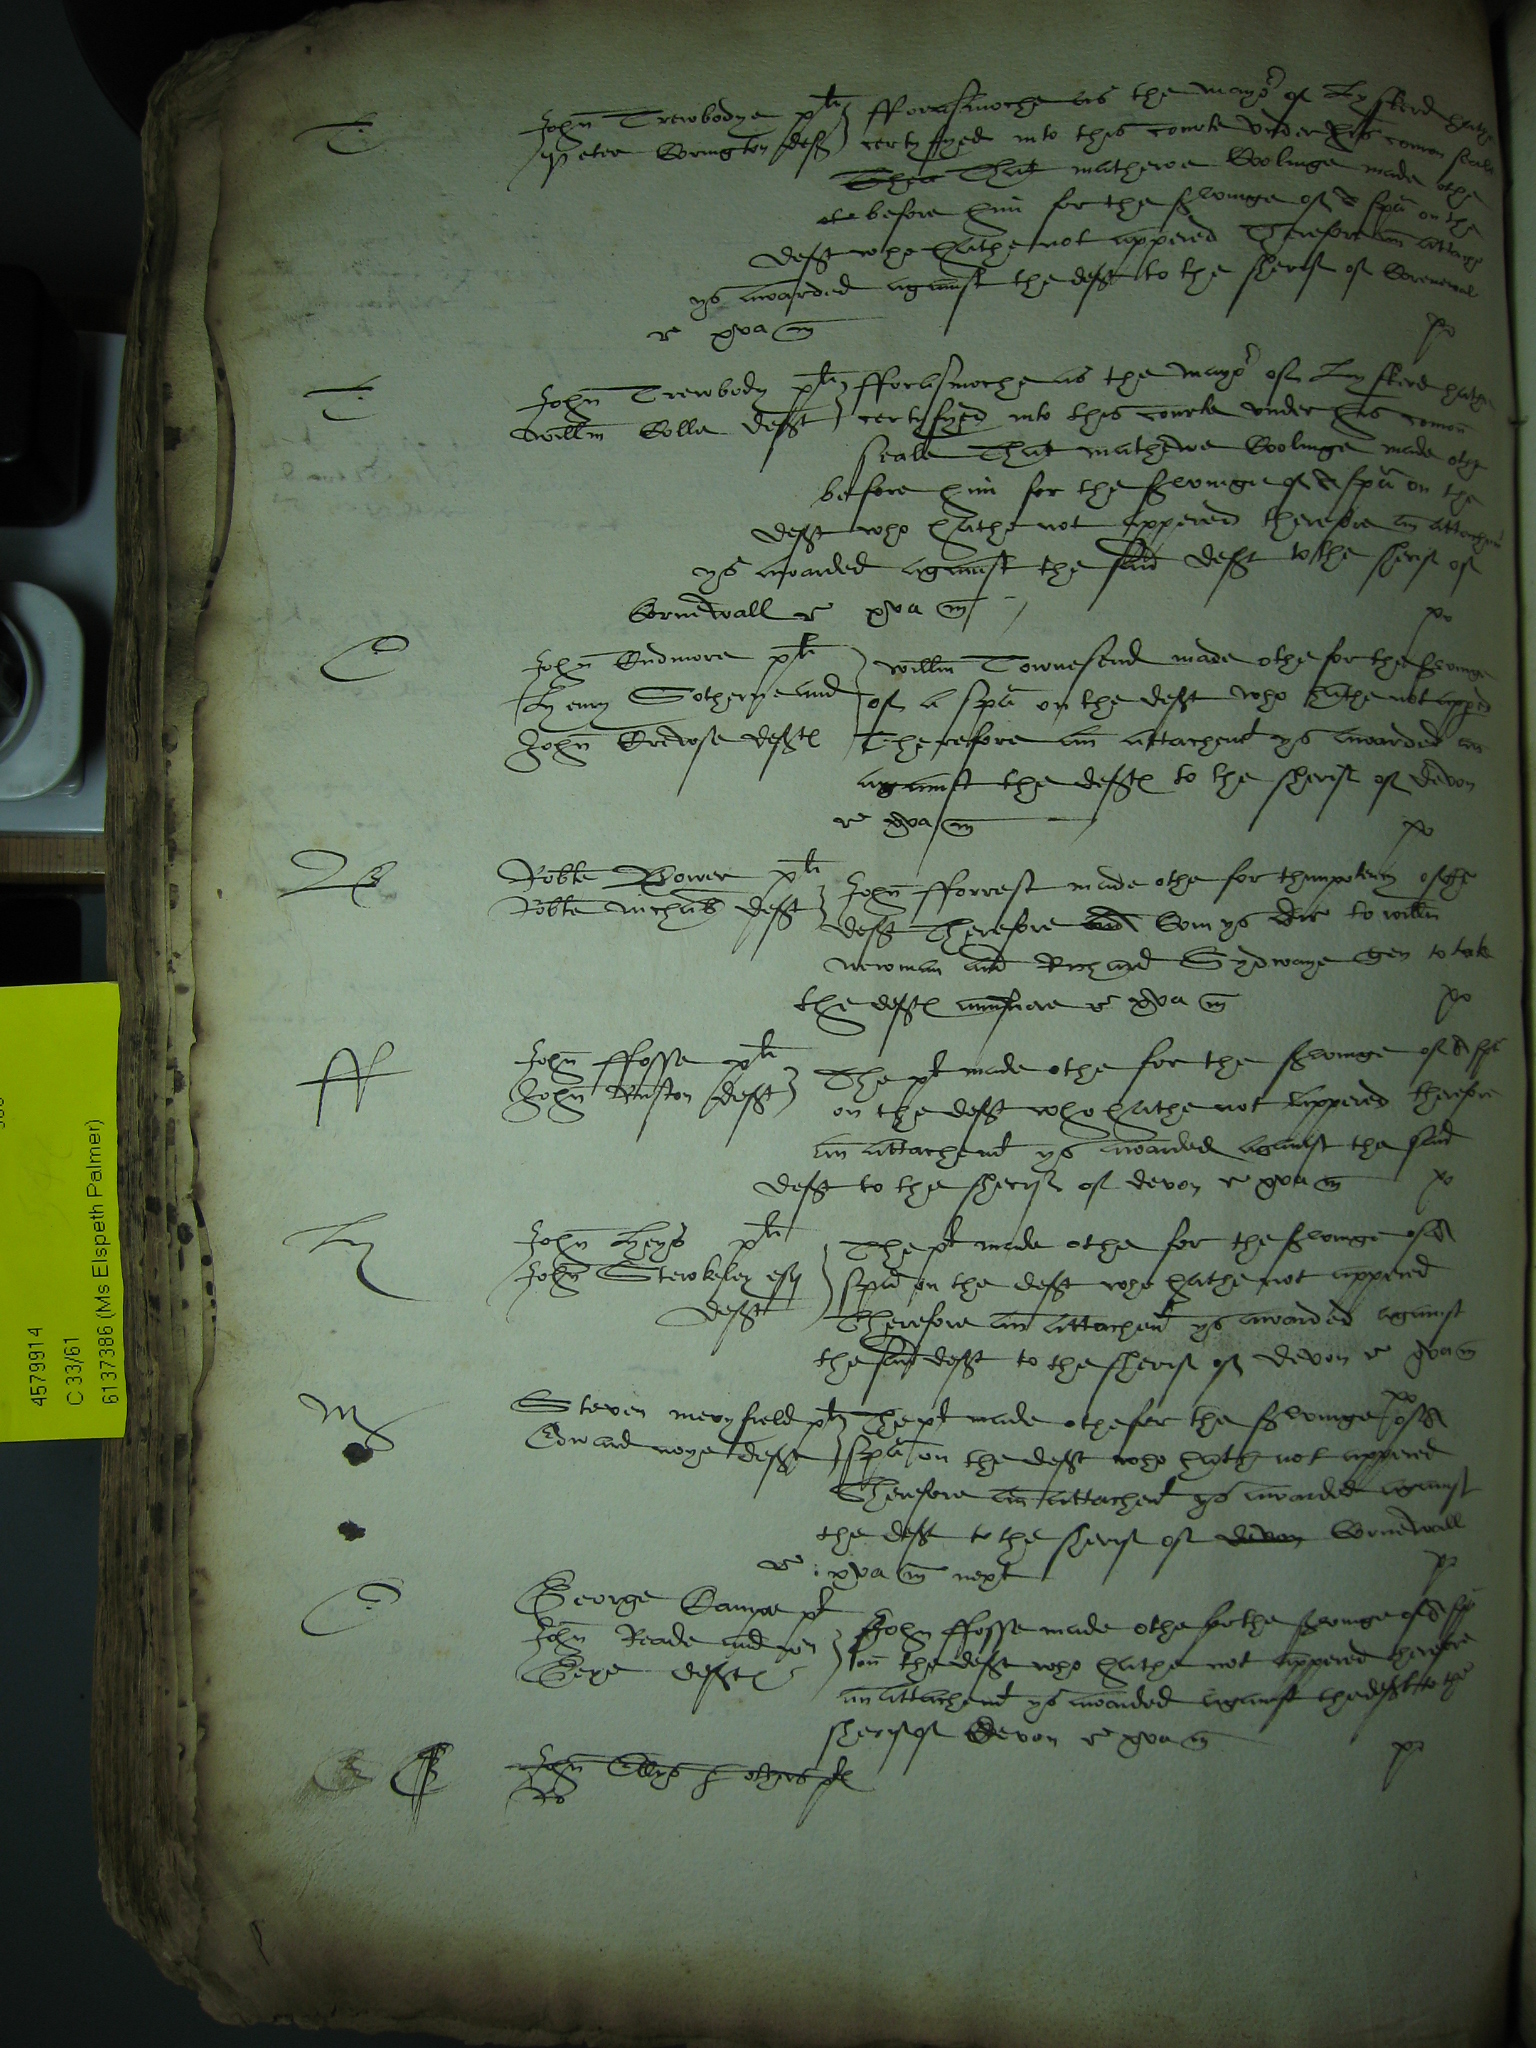 T
John Trewbodye plt
Peter Corington deft
fforasmoche as the mayor of Lyskerd hathe
certyfyed into this courte under his comon seale
That mathewe Coolinge made othe
before him for the servinge of a spa on the
deft who hathe not appered Therefore an attach
ys awarded against the deft to the sherif of Cornewall
r xva m
po
T
John Trewbody plt
Willm Colle deft
fforasmoche as the mayor of Lyskerd hathe
certyfyed into this courte under his comon
seale That mathewe Coolinge made othe
before him for the servinge of a spa on the
deft who hathe not appered therefore an attachmt
ys awarded against the said deft to the sherif of
Cornewall r xva m
po
C
John Cudmore plt
Henry Sotherne and
John Crewse deftes
Willm Townesend made othe for the servinge
of a spa on the deft who hathe not appered
Therefore an attachmt ys awarded
against the deftes to the sherif of devon
r xva m
po
Robte Bower plt
Robte deft
John fforrest made othe for thimpotency of the
deft Therefore Com ys dir to willm
newman and Richard Sydwaye gen to take
the deftes answere r xva m
po
ff
John ffosse plt
John Ruston deft
The plt made othe for the servinge of a spa
on the deft who hathe not appered therefore
an attachmt ys awarded against the said
deft to the sherif of devon r xva m
po
H
John Heys plt
John Stewkeley esq
deft
The plt made othe for the servinge of a
spa on the deft who hathe not appered
Therefore an attachmt ys awarded against
the said deft to the sherif of devon r xva m
po
M
Steven meryfield plt
Edward noye deft
The plt made othe for the servinge of a
spa on the deft who hath not appered
Therefore an attachmt ys awarded against
the deft to the sherif of devon Cornewall
r xva m next
po
C
George Campe plt
John Reade and
deftes
John ffosse made othe for the servinge of a spa
on the deft who hathe not appered therefore
an attachmt ys awarded against the deft to the
sherif of Devon r xva m
po
E
John Ellys & others plt
Ro
4579914
C 33/61
6137386 (Ms Elspeth Palmer)